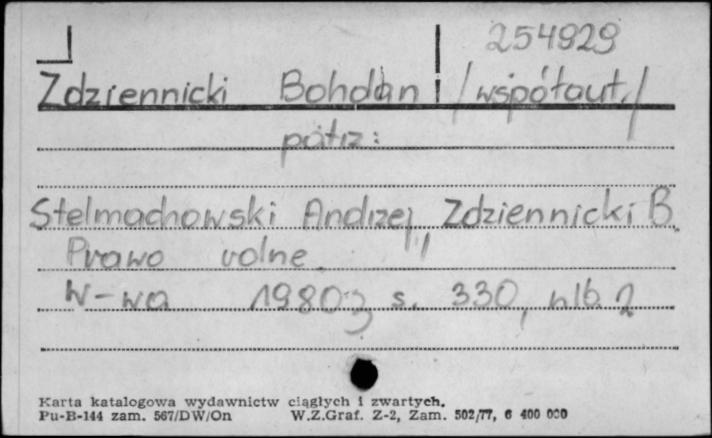 254929
Zdziennicki Bohdan /współaut./
patrz:
Stelmachowski Andrzej, Zdziennicki B.
Prawo rolne.
W-wa 1980 s. 330, nlb 2
Karta katalogowa wydawnictw ciągłych i zwartych.
Pu-B-144 zam. 567/DW/On W.Z.Graf. Z-2, Zam. 502/77, 6 400 000